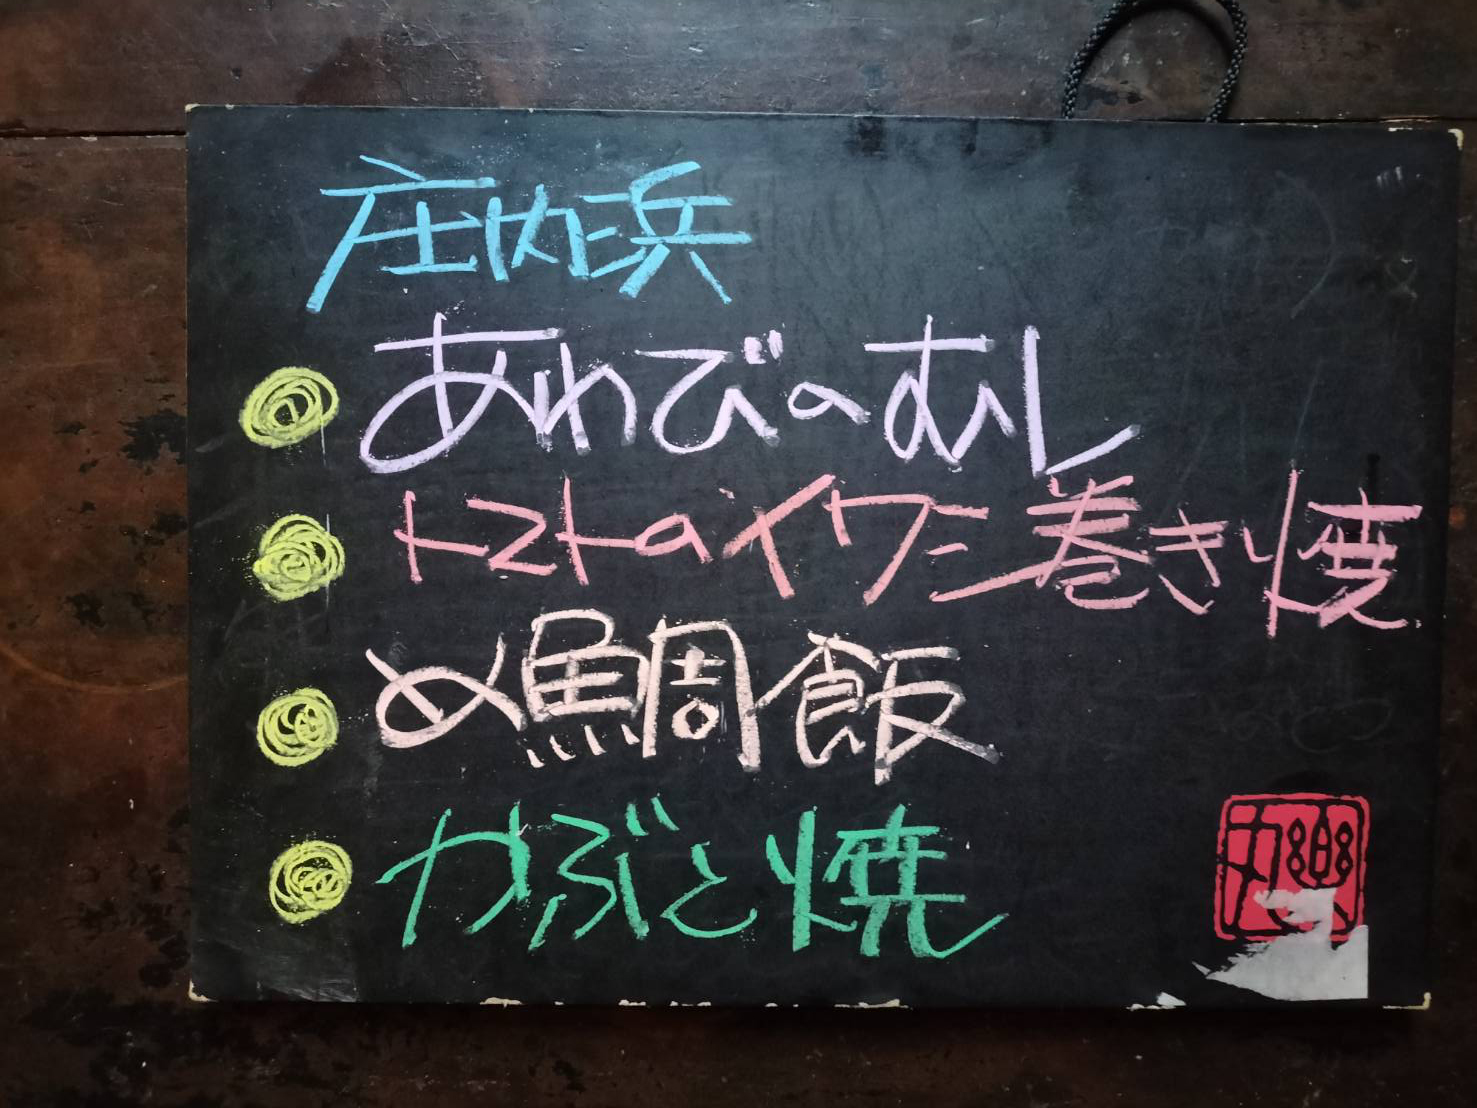 庄内浜
あわびのむし
トマトのイワシ巻き焼
〆鯛飯
かぶと焼